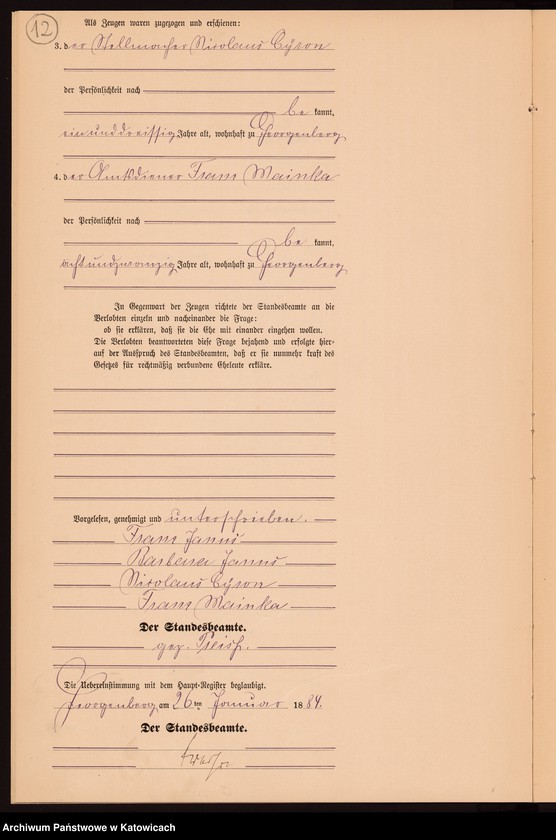 12
Als Zeugen waren zugezogen und erschienen:
3. der Stellmacher Nicolaus Cyron
der Persönlichkeit nach
be kannt,
einunddreissig Jahre alt, wohnhaft zu Georgenberg
4. der Amtsdiener Franz Mainka
der Persönlichkeit nach
be kannt,
achtundzwanzig Jahre alt, wohnhaft zu Georgenberg
In Gegenwart der Zeugen richtete der Standesbeamte an die
Verlobten einzeln und nacheinander die Frage:
ob sie erklären, daß sie die Ehe mit einander eingehen wollen.
Die Verlobten beantworteten diese Frage bejahend und erfolgte hier-
auf der Ausspruch des Standesbeamten, daß er sie nunmehr kraft des
Gesetzes für rechtmäßig verbundene Eheleute erkläre.
Vorgelesen, genehmigt und unterschrieben.
Franz Janus
Barbara Janus
Nicolaus Cyron
Franz Mainka
Der Standesbeamte.
gez.
Die Uebereinstimmung mit dem Haupt-Register beglaubigt.
Georgenberg am 26ten Januar 1884.
Der Standesbeamte.
Archiwum Państwowe w Katowicach